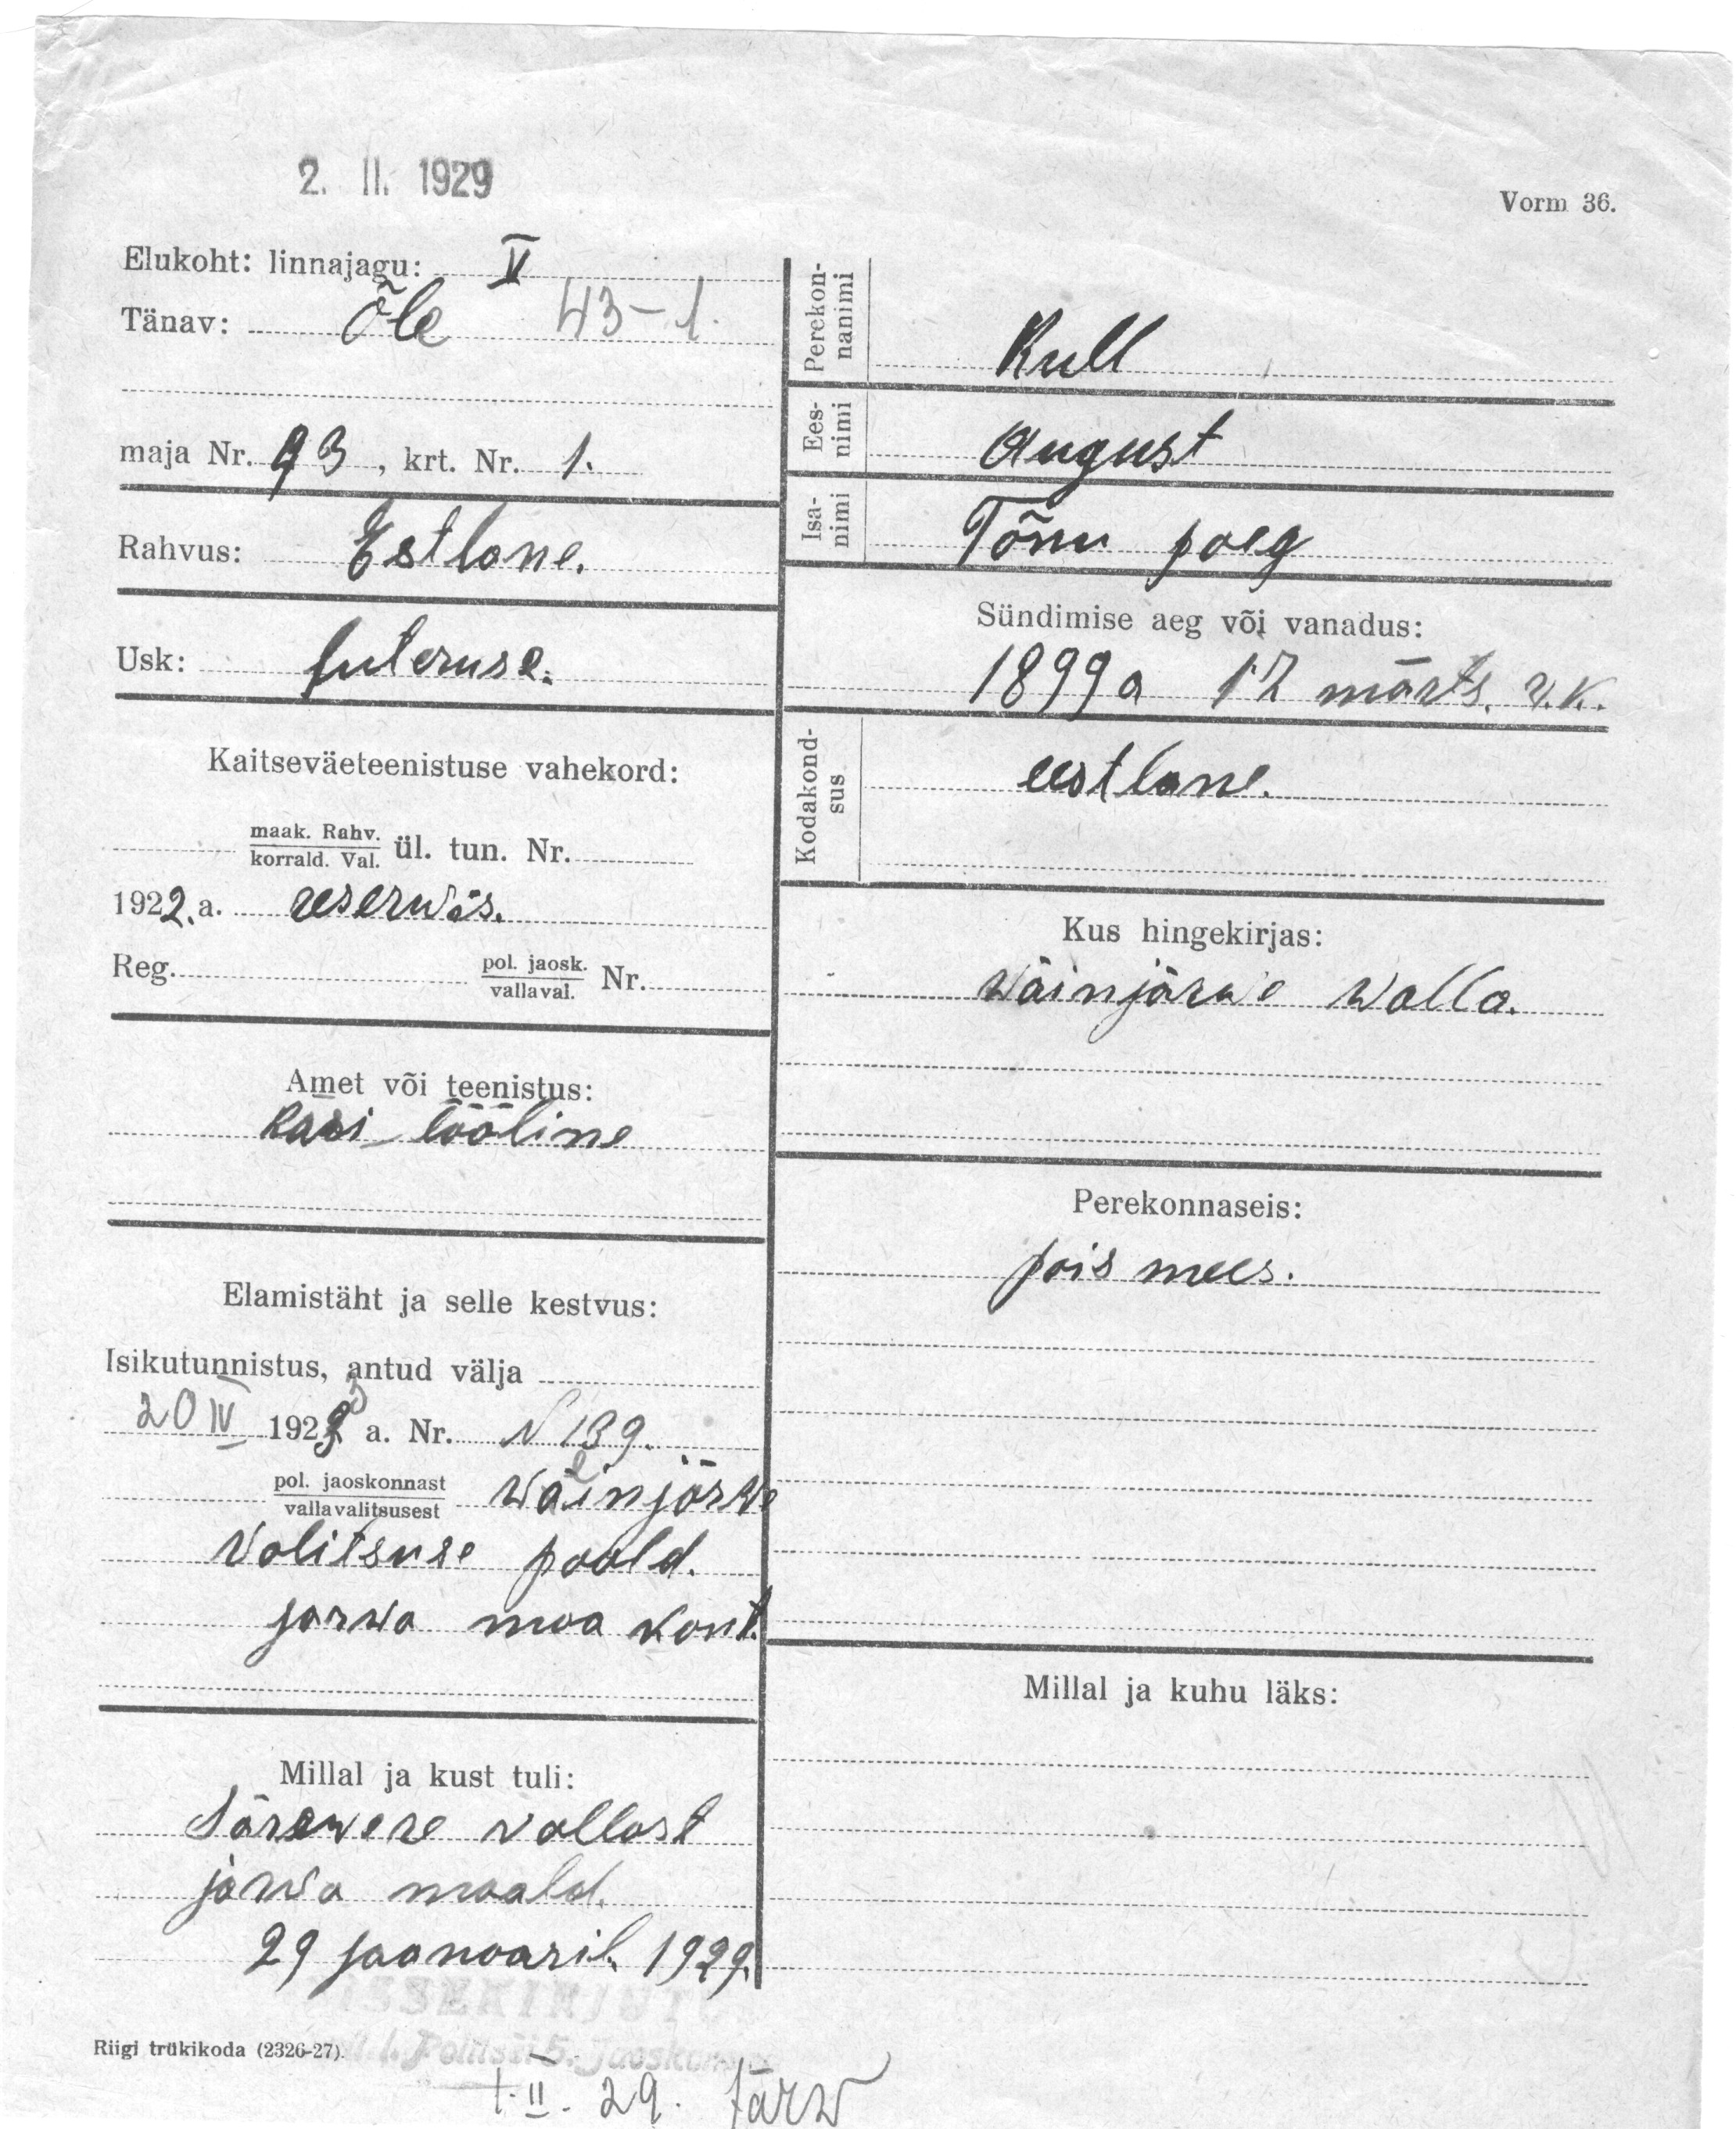 2. II. 1929
Vorm 36.
Elukoht: linnajagu: V
Tänav: Õle 43-1.
maja Nr. 43, krt. Nr. 1.
Rahvus: Estlane.
Usk: luteruse.
Kaitseväeteenistuse vahekord:
maak. Rahv.
korrald. Val. ül. tun. Nr.
1922. a. reserwis.
Reg. pol. jaosk.
vallaval. Nr.
Amet või teenistus:
Käsi tööline
Elamistäht ja selle kestvus:
Isikutunnistus, antud välja
20 IV 192 a. Nr. N 139.
pol. jaoskonnast
vallavalitsusest Wäinjärwe
Valitsuse poold.
jarwa maa kont.
Millal ja kust tuli:
Särewere vallast
järwa maald.
29 jaanoaril. 1929.
Perekon-
nanimi
Kull
Ees-
nimi
August
Isa-
nimi
Tõnu poeg
Sündimise aeg või vanadus:
1899 a 17 märts. v.K.
Kodakond-
sus
eestlane.
Kus hingekirjas:
Wäinjärwe walla.
Perekonnaseis:
pois mees.
Millal ja kuhu läks:
Riigi trükikoda (2326-27).
SISSEKIRJUTUD
Politsei 5. jaoskonnas
1. II. 29. Järw